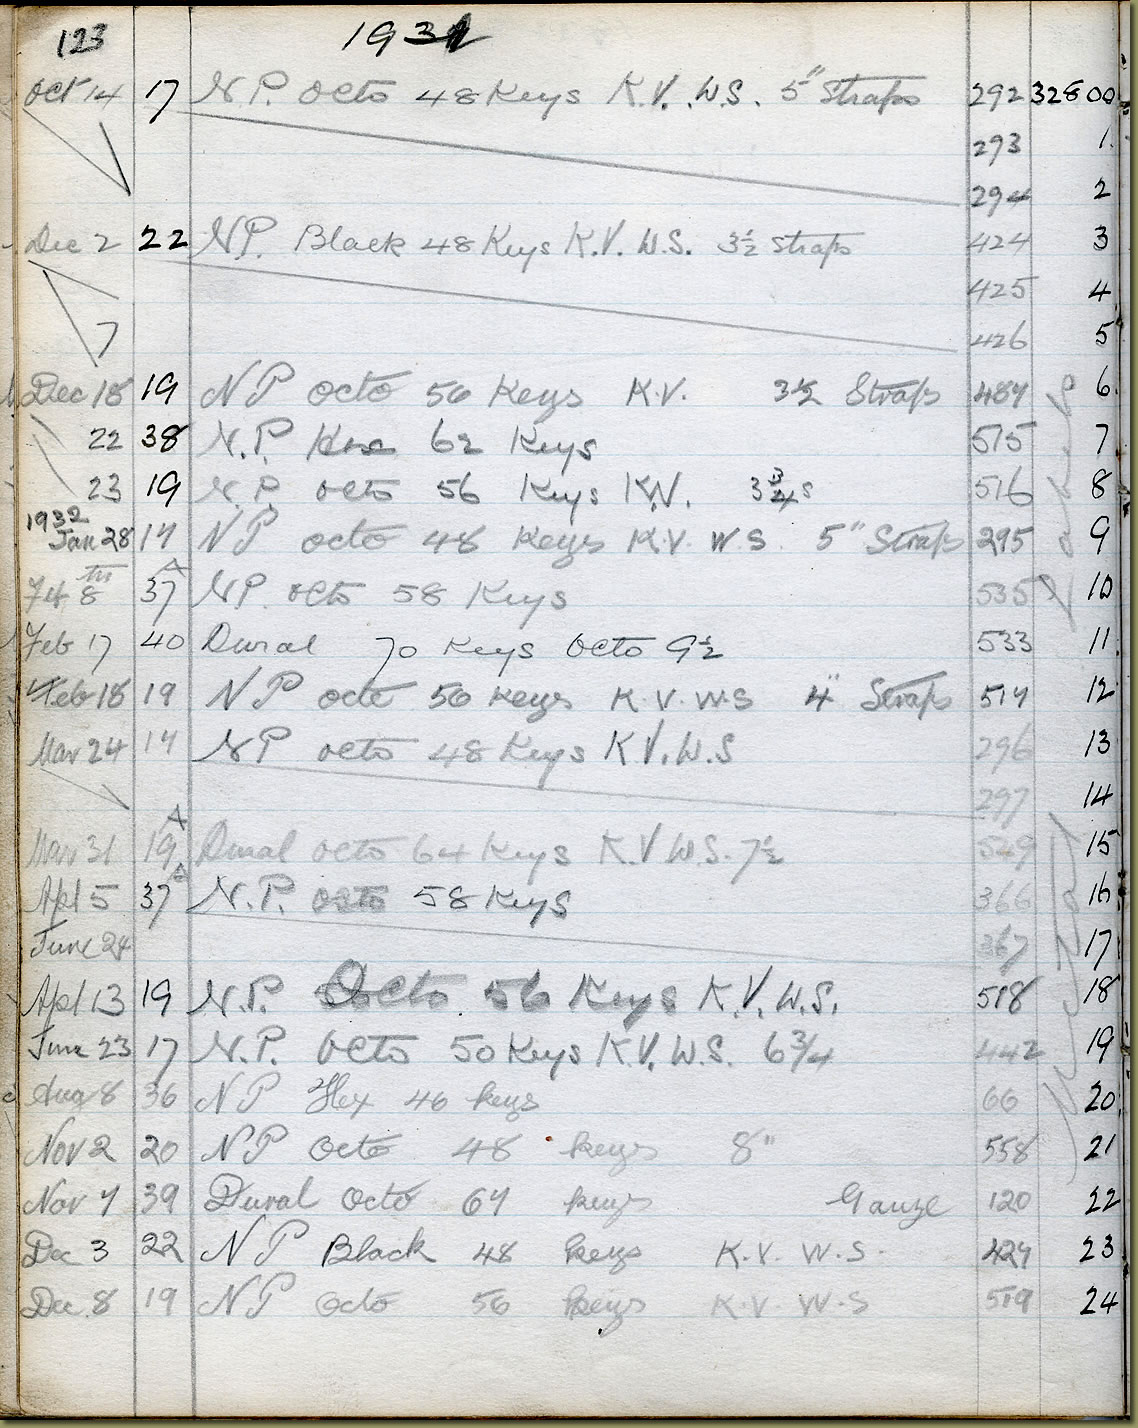 123 1931
Oct 14 17 N.P. Octo 48 Keys K.V. W.S. 5" Straps 292 32800
293 1
294 2
Dec 2 22 N.P. Black 48 Keys K.V. W.S. 3½ Straps 424 3
425 4
7 426 5
Dec 18 19 NP Octo 56 Keys K.V. 3½ Straps 487 6
22 38 N.P. 62 Keys 515 7
23 19 N.P. Octo 56 Keys K.V. 3¾ s 516 8
1932
Jan 28 17 NP Octo 48 Keys K.V. W.S. 5" Straps 295 9
8th 37A NP. Octo 58 Keys 535 10
Feb 17 40 Dural 70 Keys Octo 9½ 533 11
Feb 18 19 NP Octo 56 Keys K.V. W.S 4" Straps 517 12
Mar 24 17 NP Octo 48 Keys K.V. W.S 296 13
297 14
Mar 31 19A Dural Octo 64 Keys K.V W.S. 7½ 549 15
Apl 5 37A N.P. Octo 58 Keys 366 16
June 24 367 17
Apl 13 19 N.P. Octo 56 Keys K.V. W.S. 518 18
June 23 17 N.P. Octo 50 Keys K.V. W.S. 6¾ 442 19
Aug 8 36 NP Hex 46 keys 66 20
Nov 2 20 NP Octo 48 keys 8" 558 21
Nov 7 39 Dural Octo 67 keys Gauze 120 22
Dec 3 22 NP Black 48 keys K.V. W.S. 427 23
Dec 8 19 NP Octo 56 keys K.V. W.S 519 24